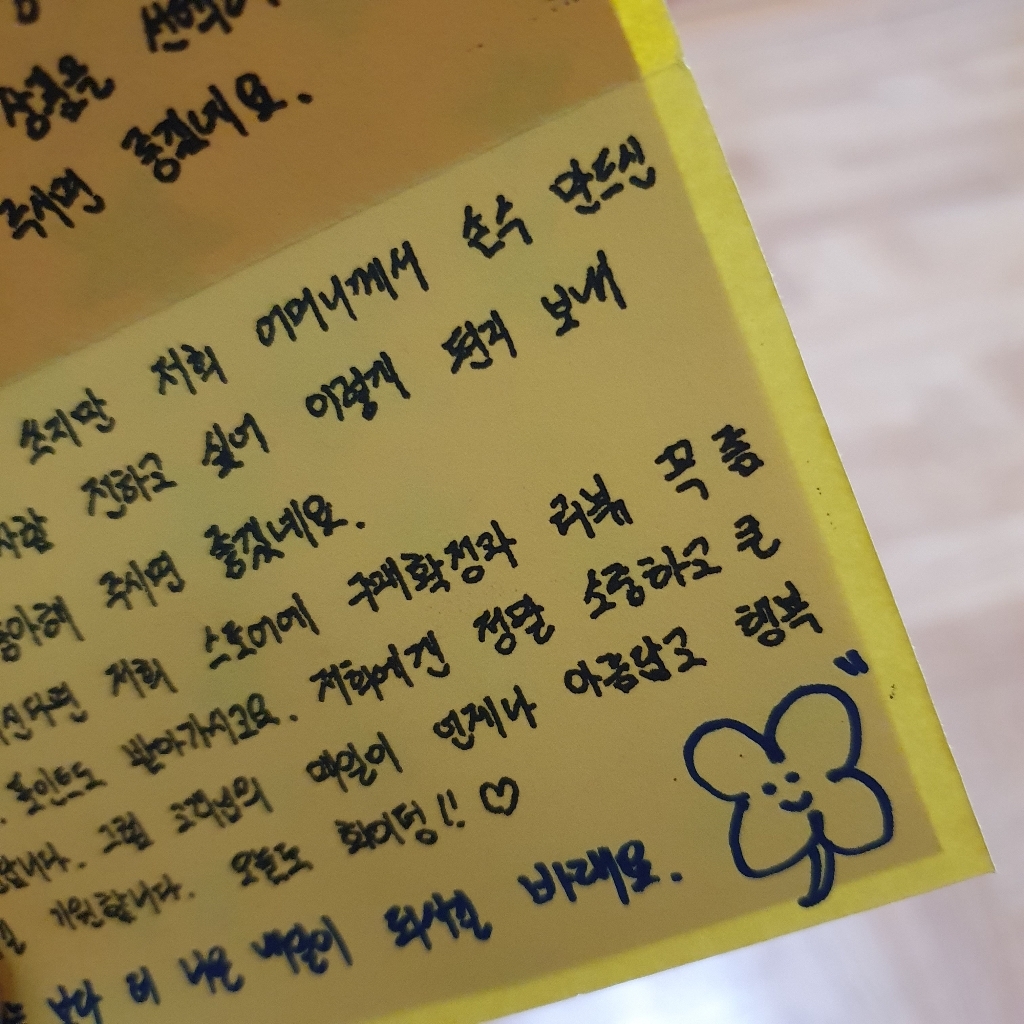 상품을 선택
주시면 좋겠네요.
쓰지만 저희 어머니께서 손수 만드신
사람 전하고 싶어 이렇게 편지 보내
좋아해 주시면 좋겠네요.
신다면 저희 스토어에 구매확정과 리뷰 꼭 좀
포인트도 받아가시고요. 저희에겐 정말 소중하고 큰
그럼 고객님의 매일이 언제나 아름답고 행복
기원합니다. 오늘도 화이팅!! ♡
보다 더 나은 내일이 되시길 바래요.